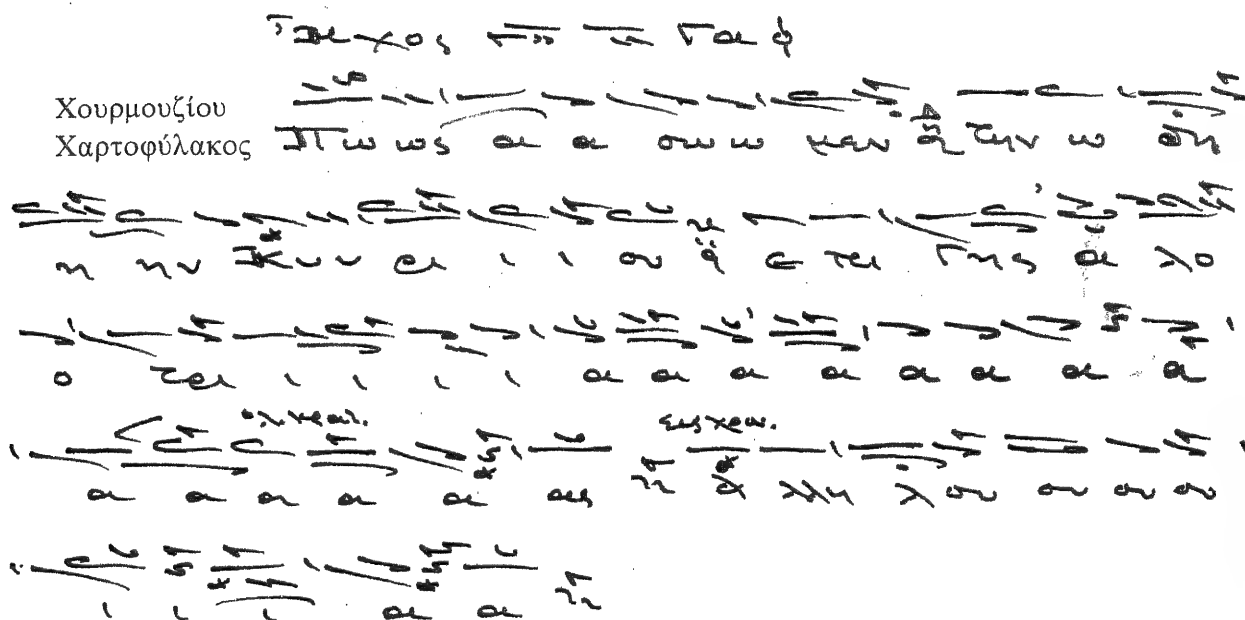 Ηχος Γα
Χουρμουζίου
Χαρτοφύλακος Πω ως α α σω ω μεν την ω δη
η ην Κυ υ ρι ι ι ου ε πι γης α λο
ο τρι ι ι ι ι α α α α α α α α
α α α α α ας α λλη λ ου ου ου ου
ι ι ι α α